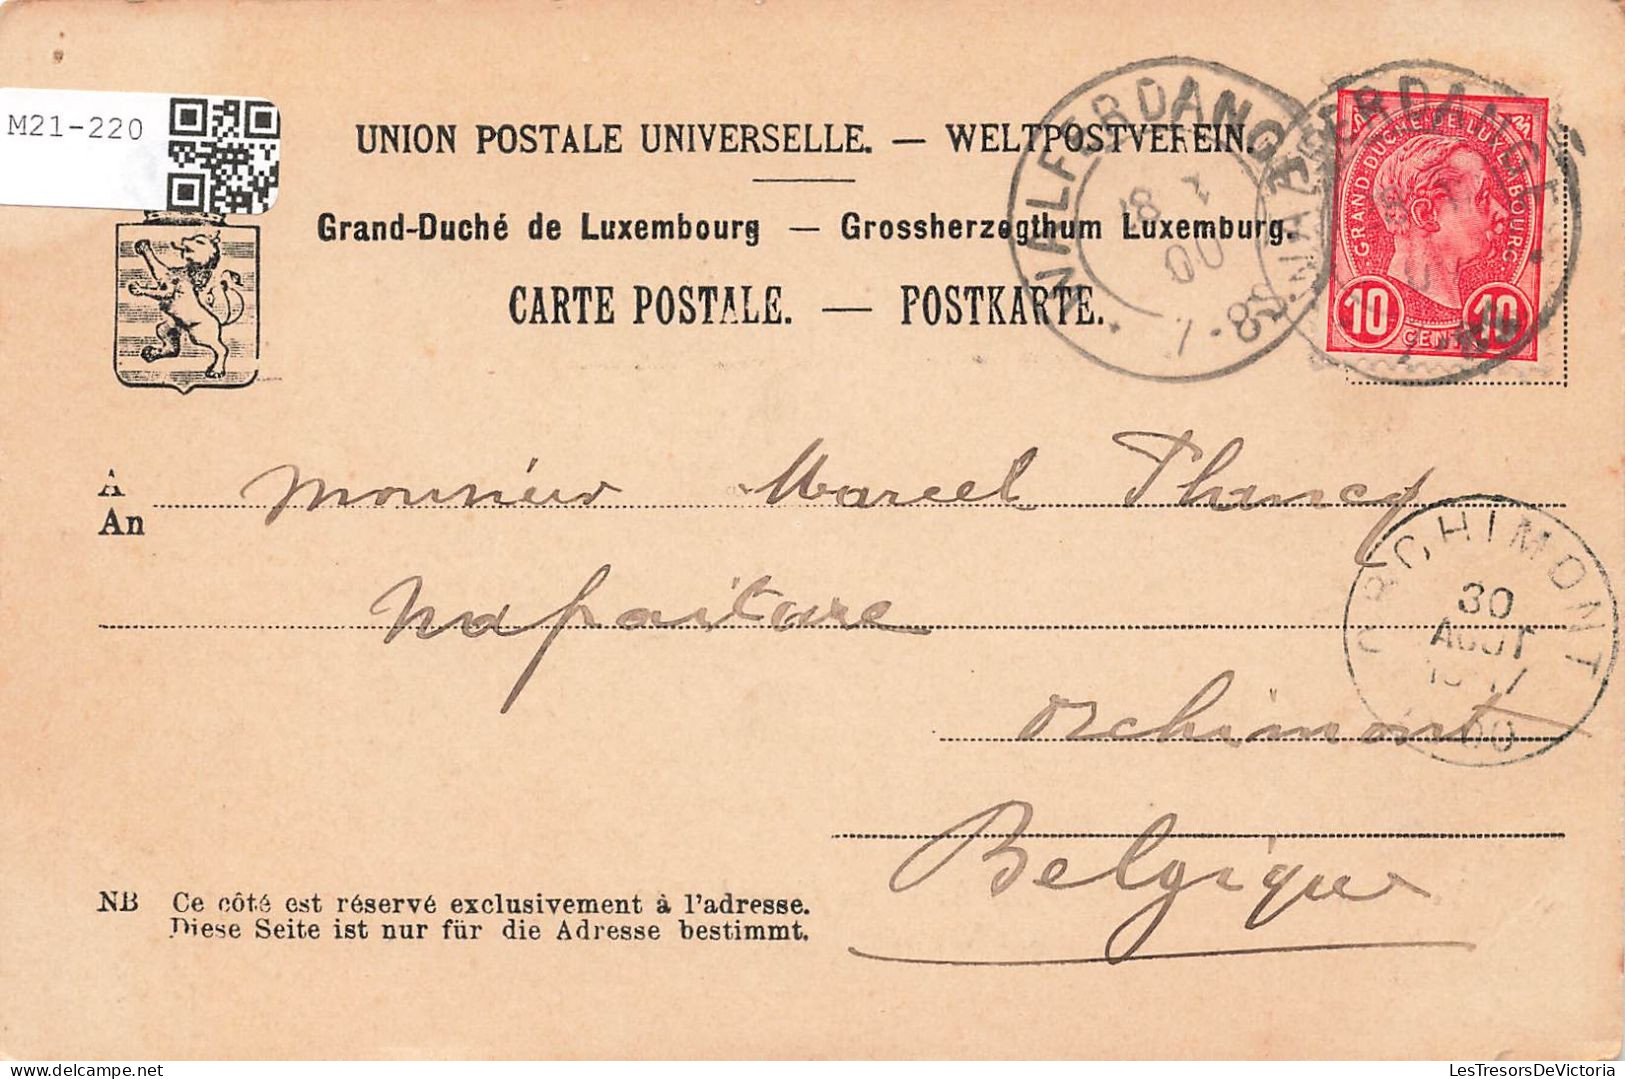 M21-220
UNION POSTALE UNIVERSELLE. — WELTPOSTVEREIN.
Grand-Duché de Luxembourg — Grossherzogthum Luxemburg.
CARTE POSTALE. — POSTKARTE.
WALFERDANGE
00
7-8S
WALFERDANGE
GRAND DUCHÉ DE LUXEMBOURG
10 CENT. 10
A Monsieur Marcel
An
ORCHIMONT
30
AOUT
00
Orchimont
Belgique
NB Ce côté est réservé exclusivement à l'adresse.
Diese Seite ist nur für die Adresse bestimmt.
LesTresorsDeVictoria